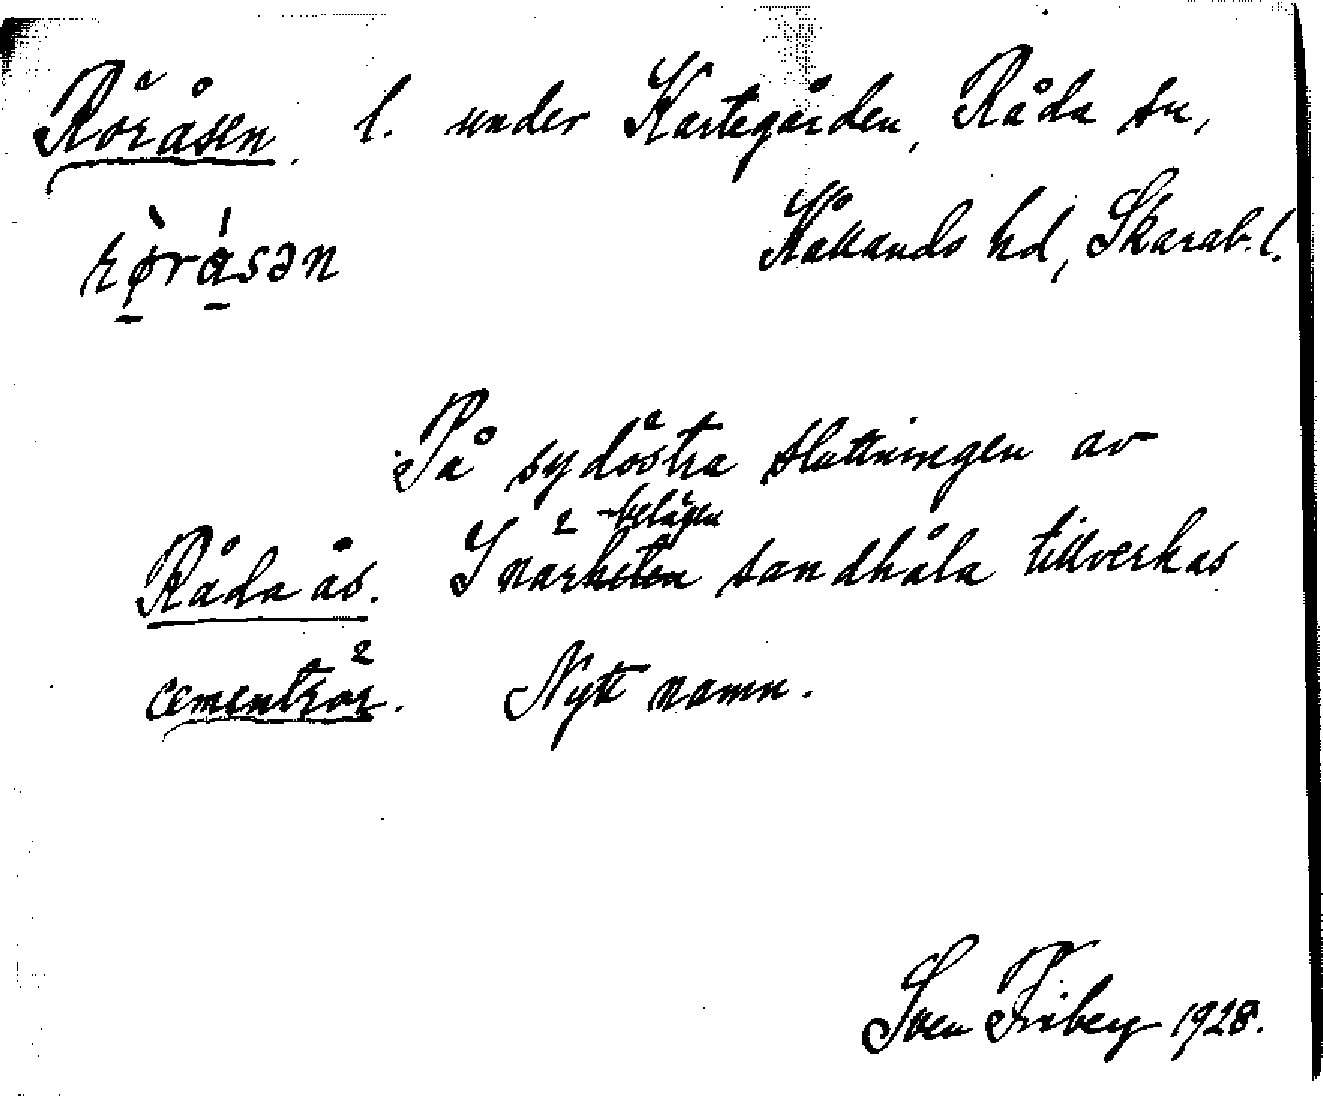 Röråsen. l. under Kartegården, Råda sn,
rø̀rásən
Kållands hd, Skarab. l.
På sydöstra sluttningen av
Råda ås. I närbelägen sandhåla tillverkas
cementrör. Nytt namn.
Sven Friberg 1928.